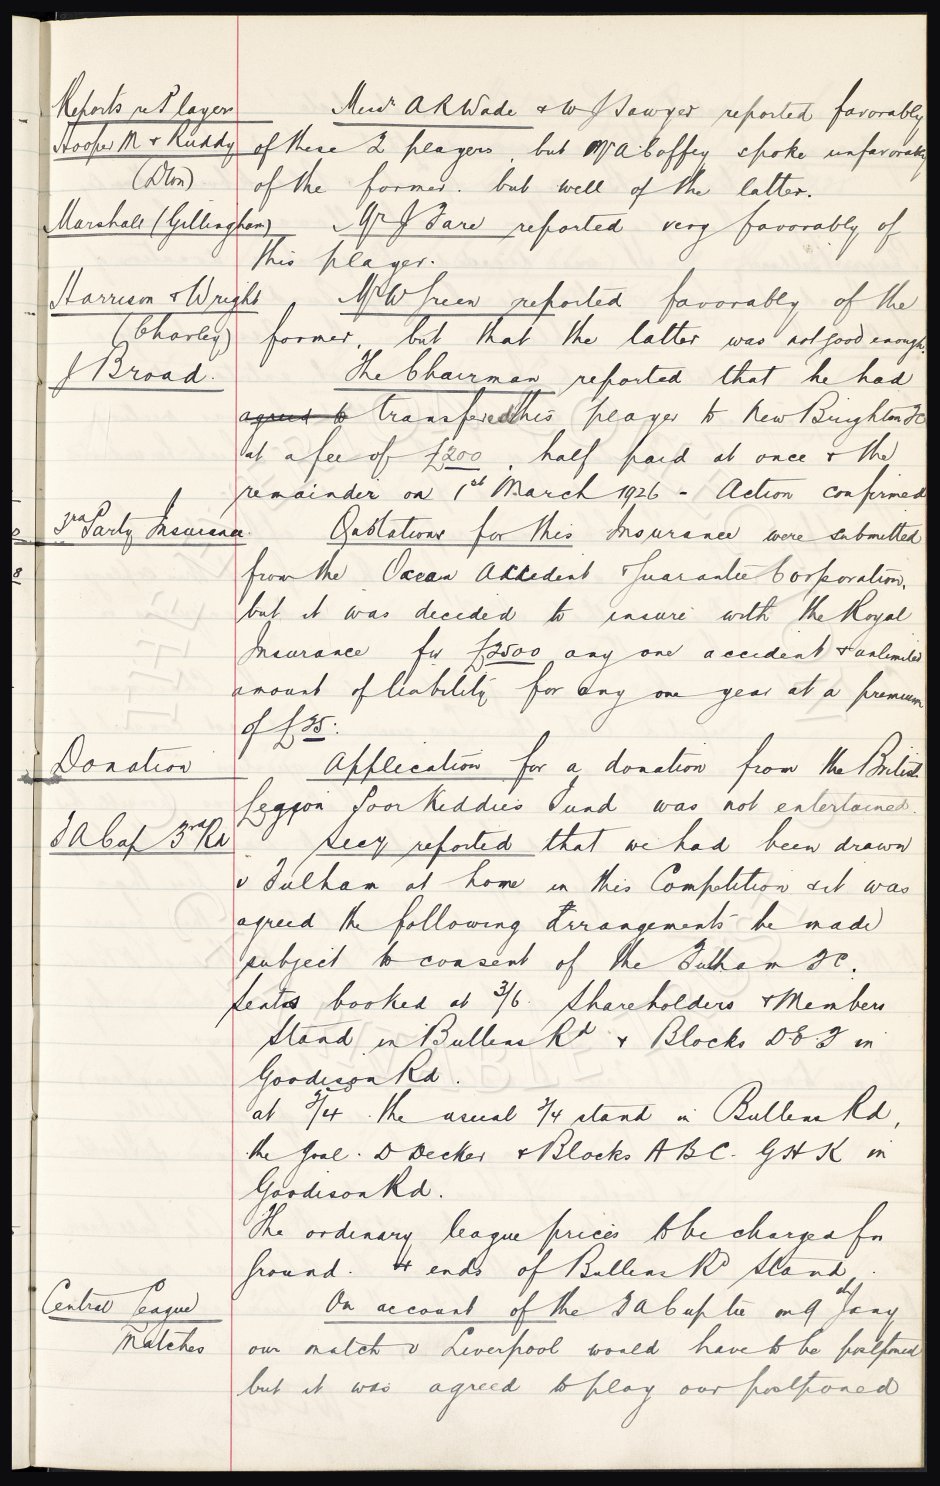 Reports re Players
Messrs A R Wade & W J Sawyer reported favorably
Hooper M & Ruddy
of these 2 players, but Mr A Coffey spoke unfavorably
(Dton)
of the former. but well of the latter.
Marshall (Gillingham)
Mr J Fare reported very favorably of
this player.
Harrison & Wright
Mr W Green reported favorably of the
(Chorley)
former, but that the latter was not good enough.
J Broad.
The Chairman reported that he had
agreed to transfered this player to New Brighton FC
at a fee of £200, half paid at once & the
remainder on 1st March 1926 - Action confirmed
3rd Party Insurance.
Quotations for this Insurance were submitted
from the Ocean Accident & Guarantee Corporation,
but it was decided to insure with the Royal
Insurance for £2500 any one accident & unlimited
amount of liability for any one year at a premium
of £35.
Donation
Application for a donation from the British
Legion Poor Kiddies Fund was not entertained.
F A Cup 3rd Rd
Secy reported that we had been drawn
v Fulham at home in this Competition & it was
agreed the following Arrangements be made
subject to consent of the Fulham FC.
Seats booked at 3/6. Shareholders & Members
Stand in Bullens Rd & Blocks D.E.F in
Goodison Rd.
at 2/4. the usual 2/4 stand in Bullens Rd,
the Goal. D Decker & Blocks A B C. G H K in
Goodison Rd.
The ordinary league prices to be charged for
Ground. & ends of Bullens Rd Stand.
Central League
On account of the F A Cup tie on 9th Jany
Matches
our match v Liverpool would have to be postponed
but it was agreed to play our postponed